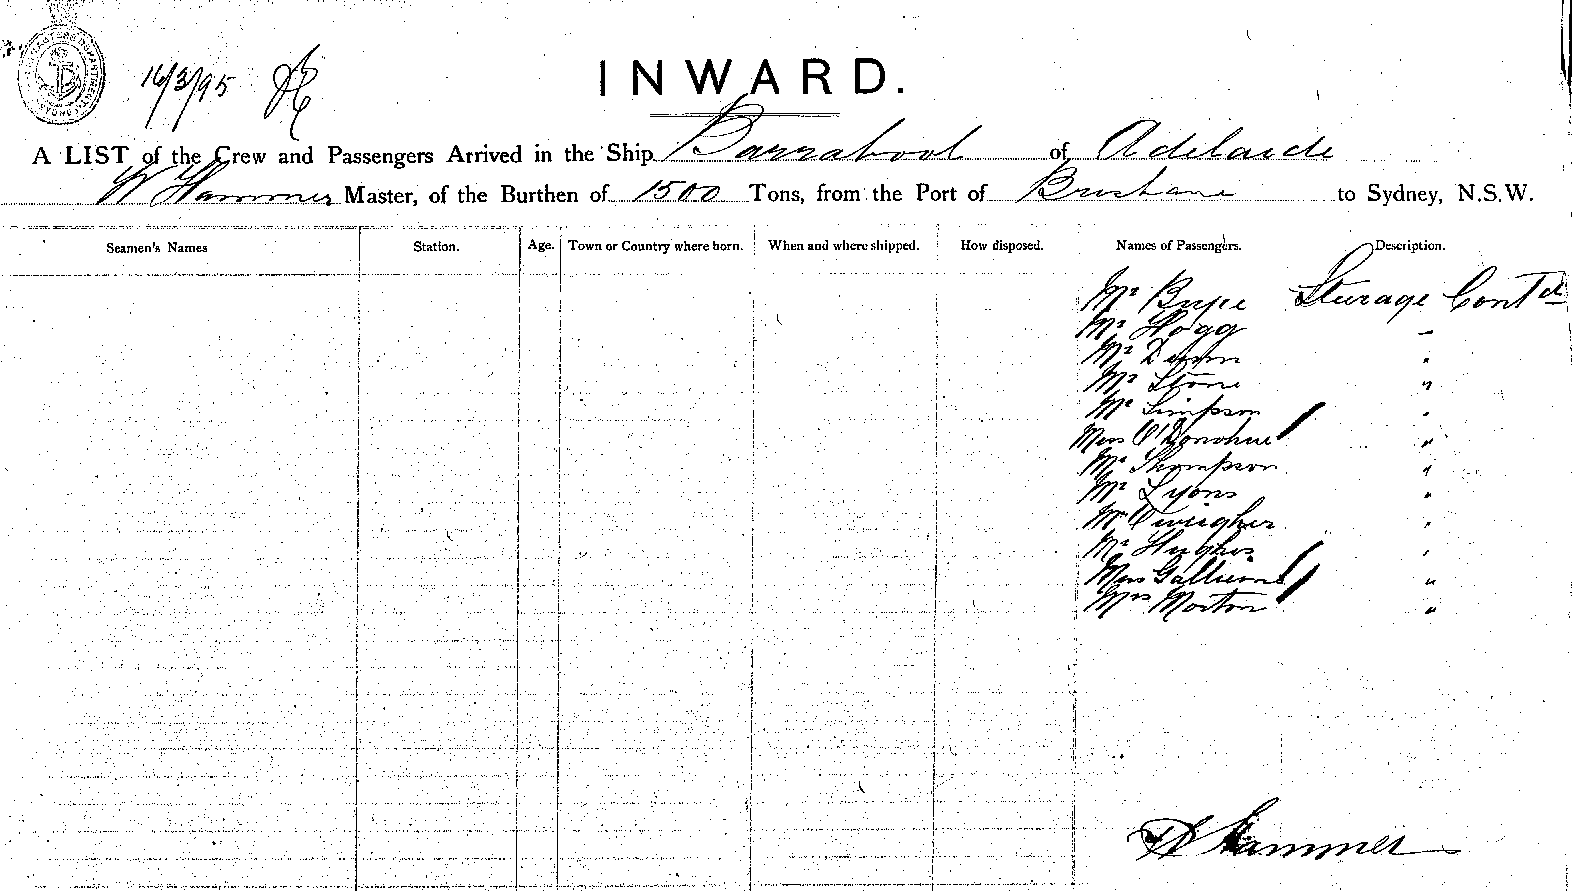 16/3/95
INWARD.
A LIST of the Crew and Passengers Arrived in the Ship Barrabool of Adelaide
W Hammer Master, of the Burthen of 1500 Tons, from the Port of Brisbane to Sydney, N.S.W.
Seamen's Names Station. Age. Town or Country where born. When and where shipped. How disposed. Names of Passengers. Description.
Mr Steerage Contd
Mr Hogg "
Mr Dunn "
Mr Stone "
Mr Simpson "
Miss O'Donohue "
Mr Thompson "
Mr Lyons "
Mr "
Mr Hughes "
Miss "
Mrs Morton "
W Hammer